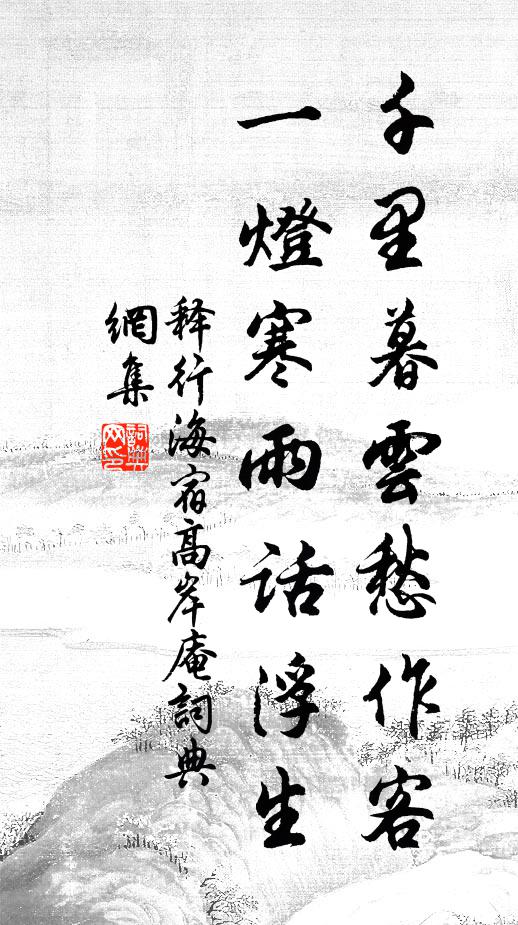 千里暮雲愁作客
一燈寒雨話浮生
释行海宿高岸庵詞典
網集